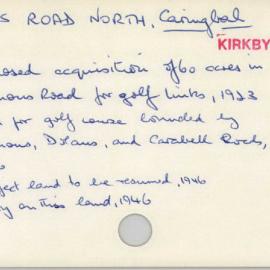 S ROAD NORTH, Caringbah
KIRKBY
osed acquisition of 60 acres in
mons Road for golf links, 1923
for golf course bounded by
mons, Dolans, and Caravell Rocds,
ject land to be resumed, 1946
on this land, 1946